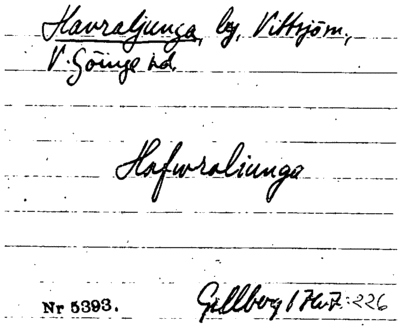 Havraljunga, by, Vittsjö sn.,
V. Göinge hd.
Hafwraliunga
Nr 5393. Gillberg 1767:226